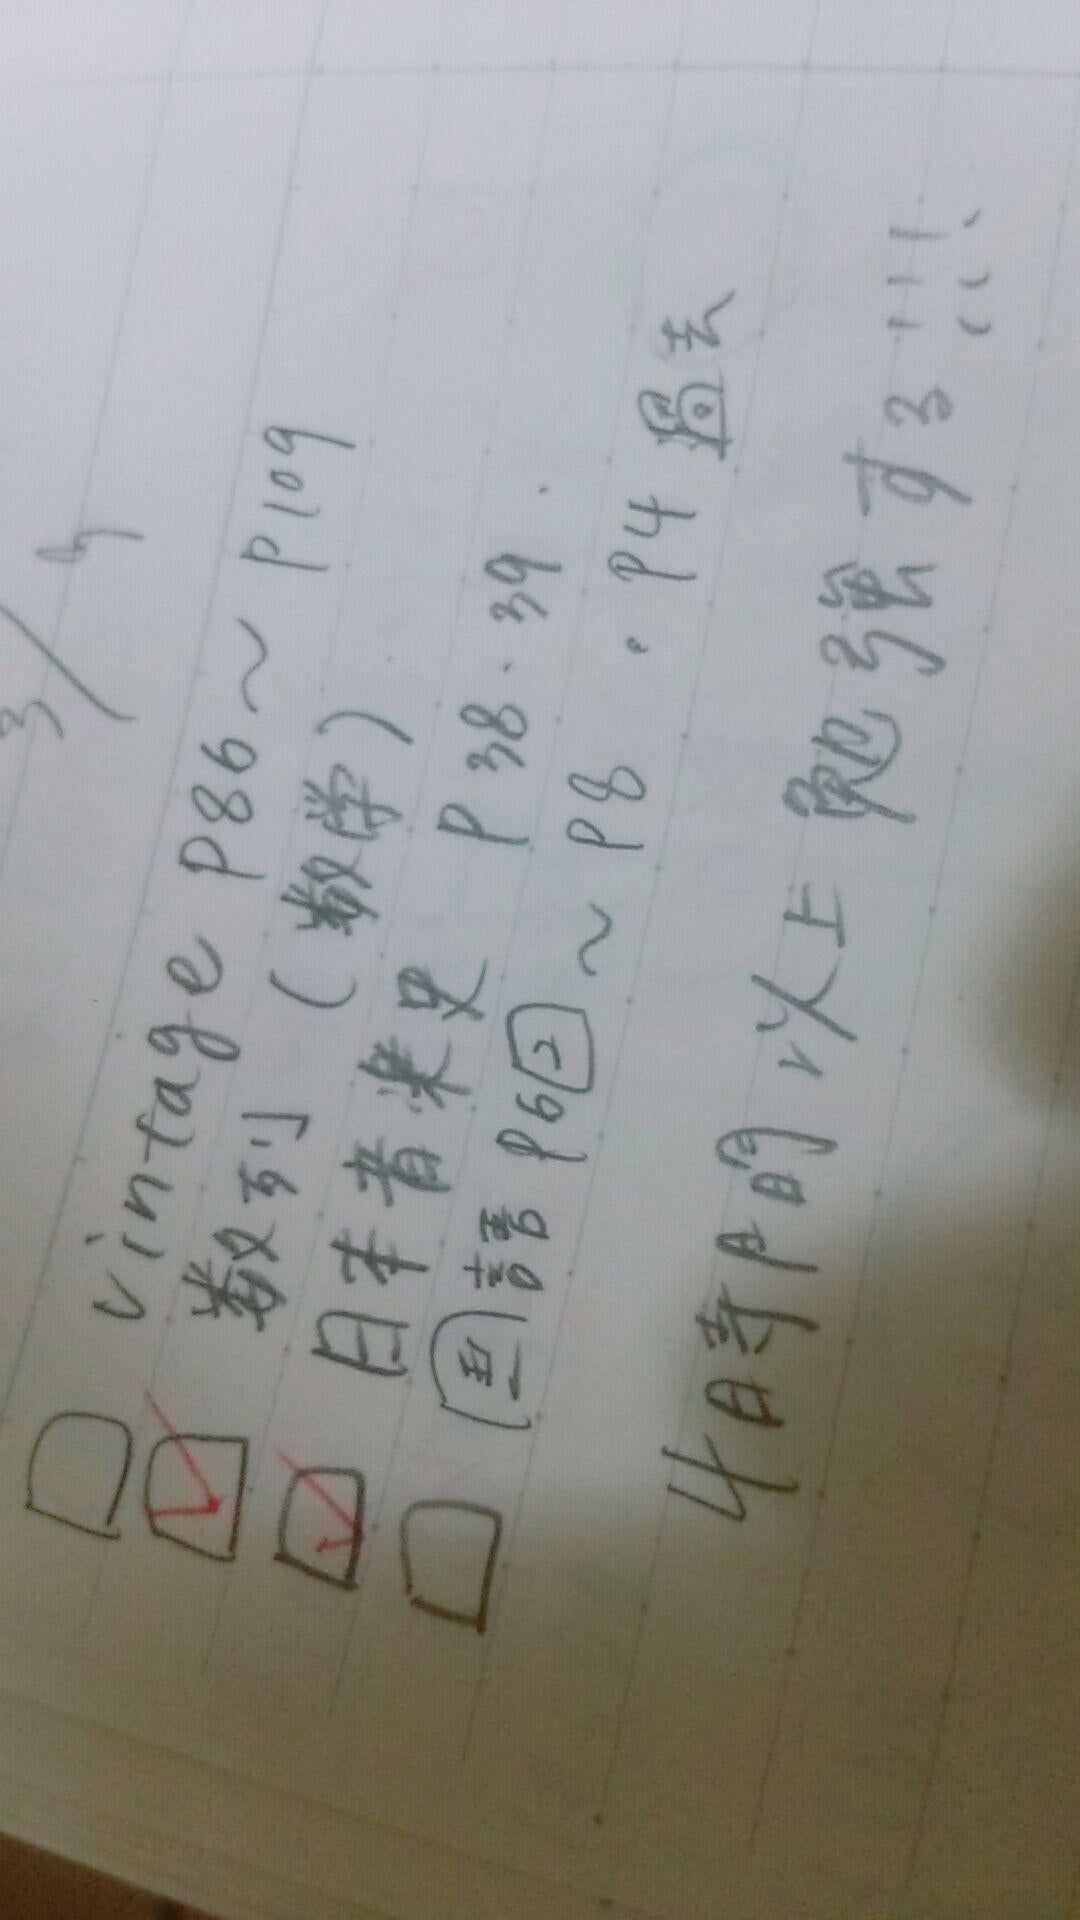 3/4
vintage P86~P109
数列 (数学)
日本音楽史 P38・39.
国語 P6 2 ~ P8 . P4
4時間以上勉強する!!!